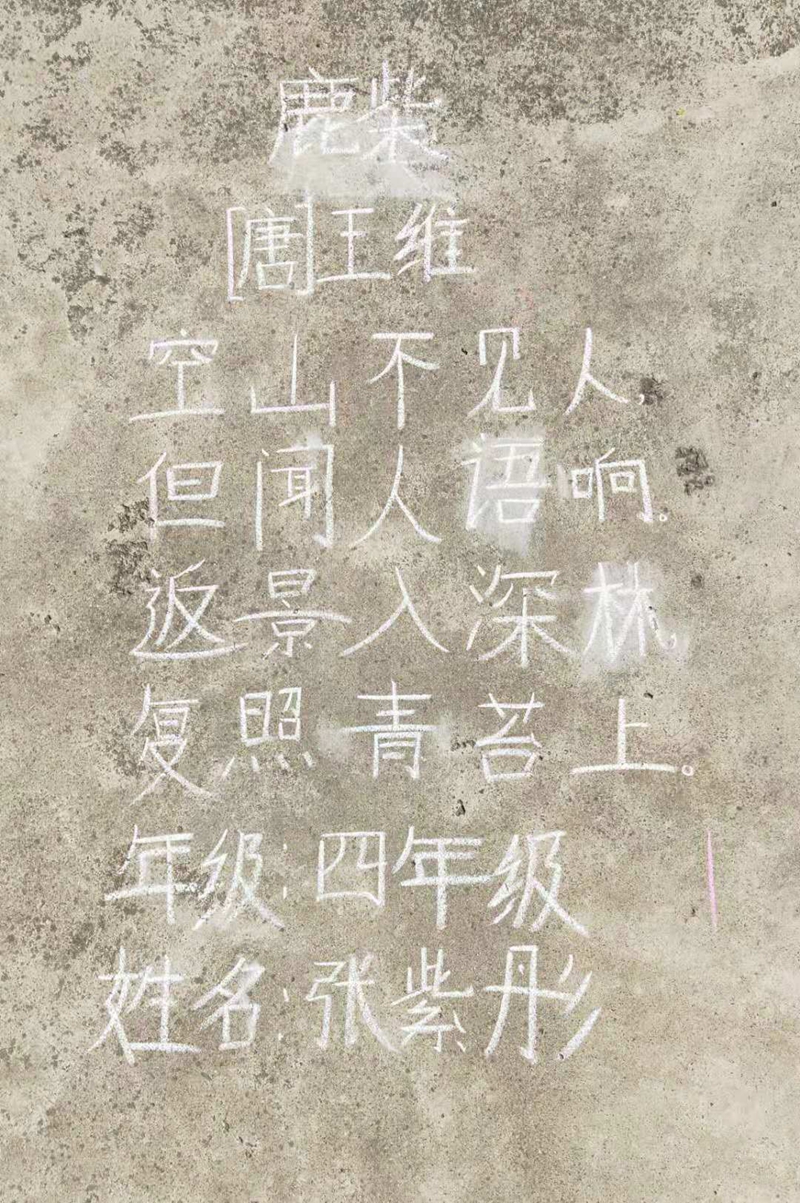 鹿柴
[唐]王维
空山不见人,
但闻人语响。
返景入深林,
复照青苔上。
年级:四年级
姓名:张紫彤